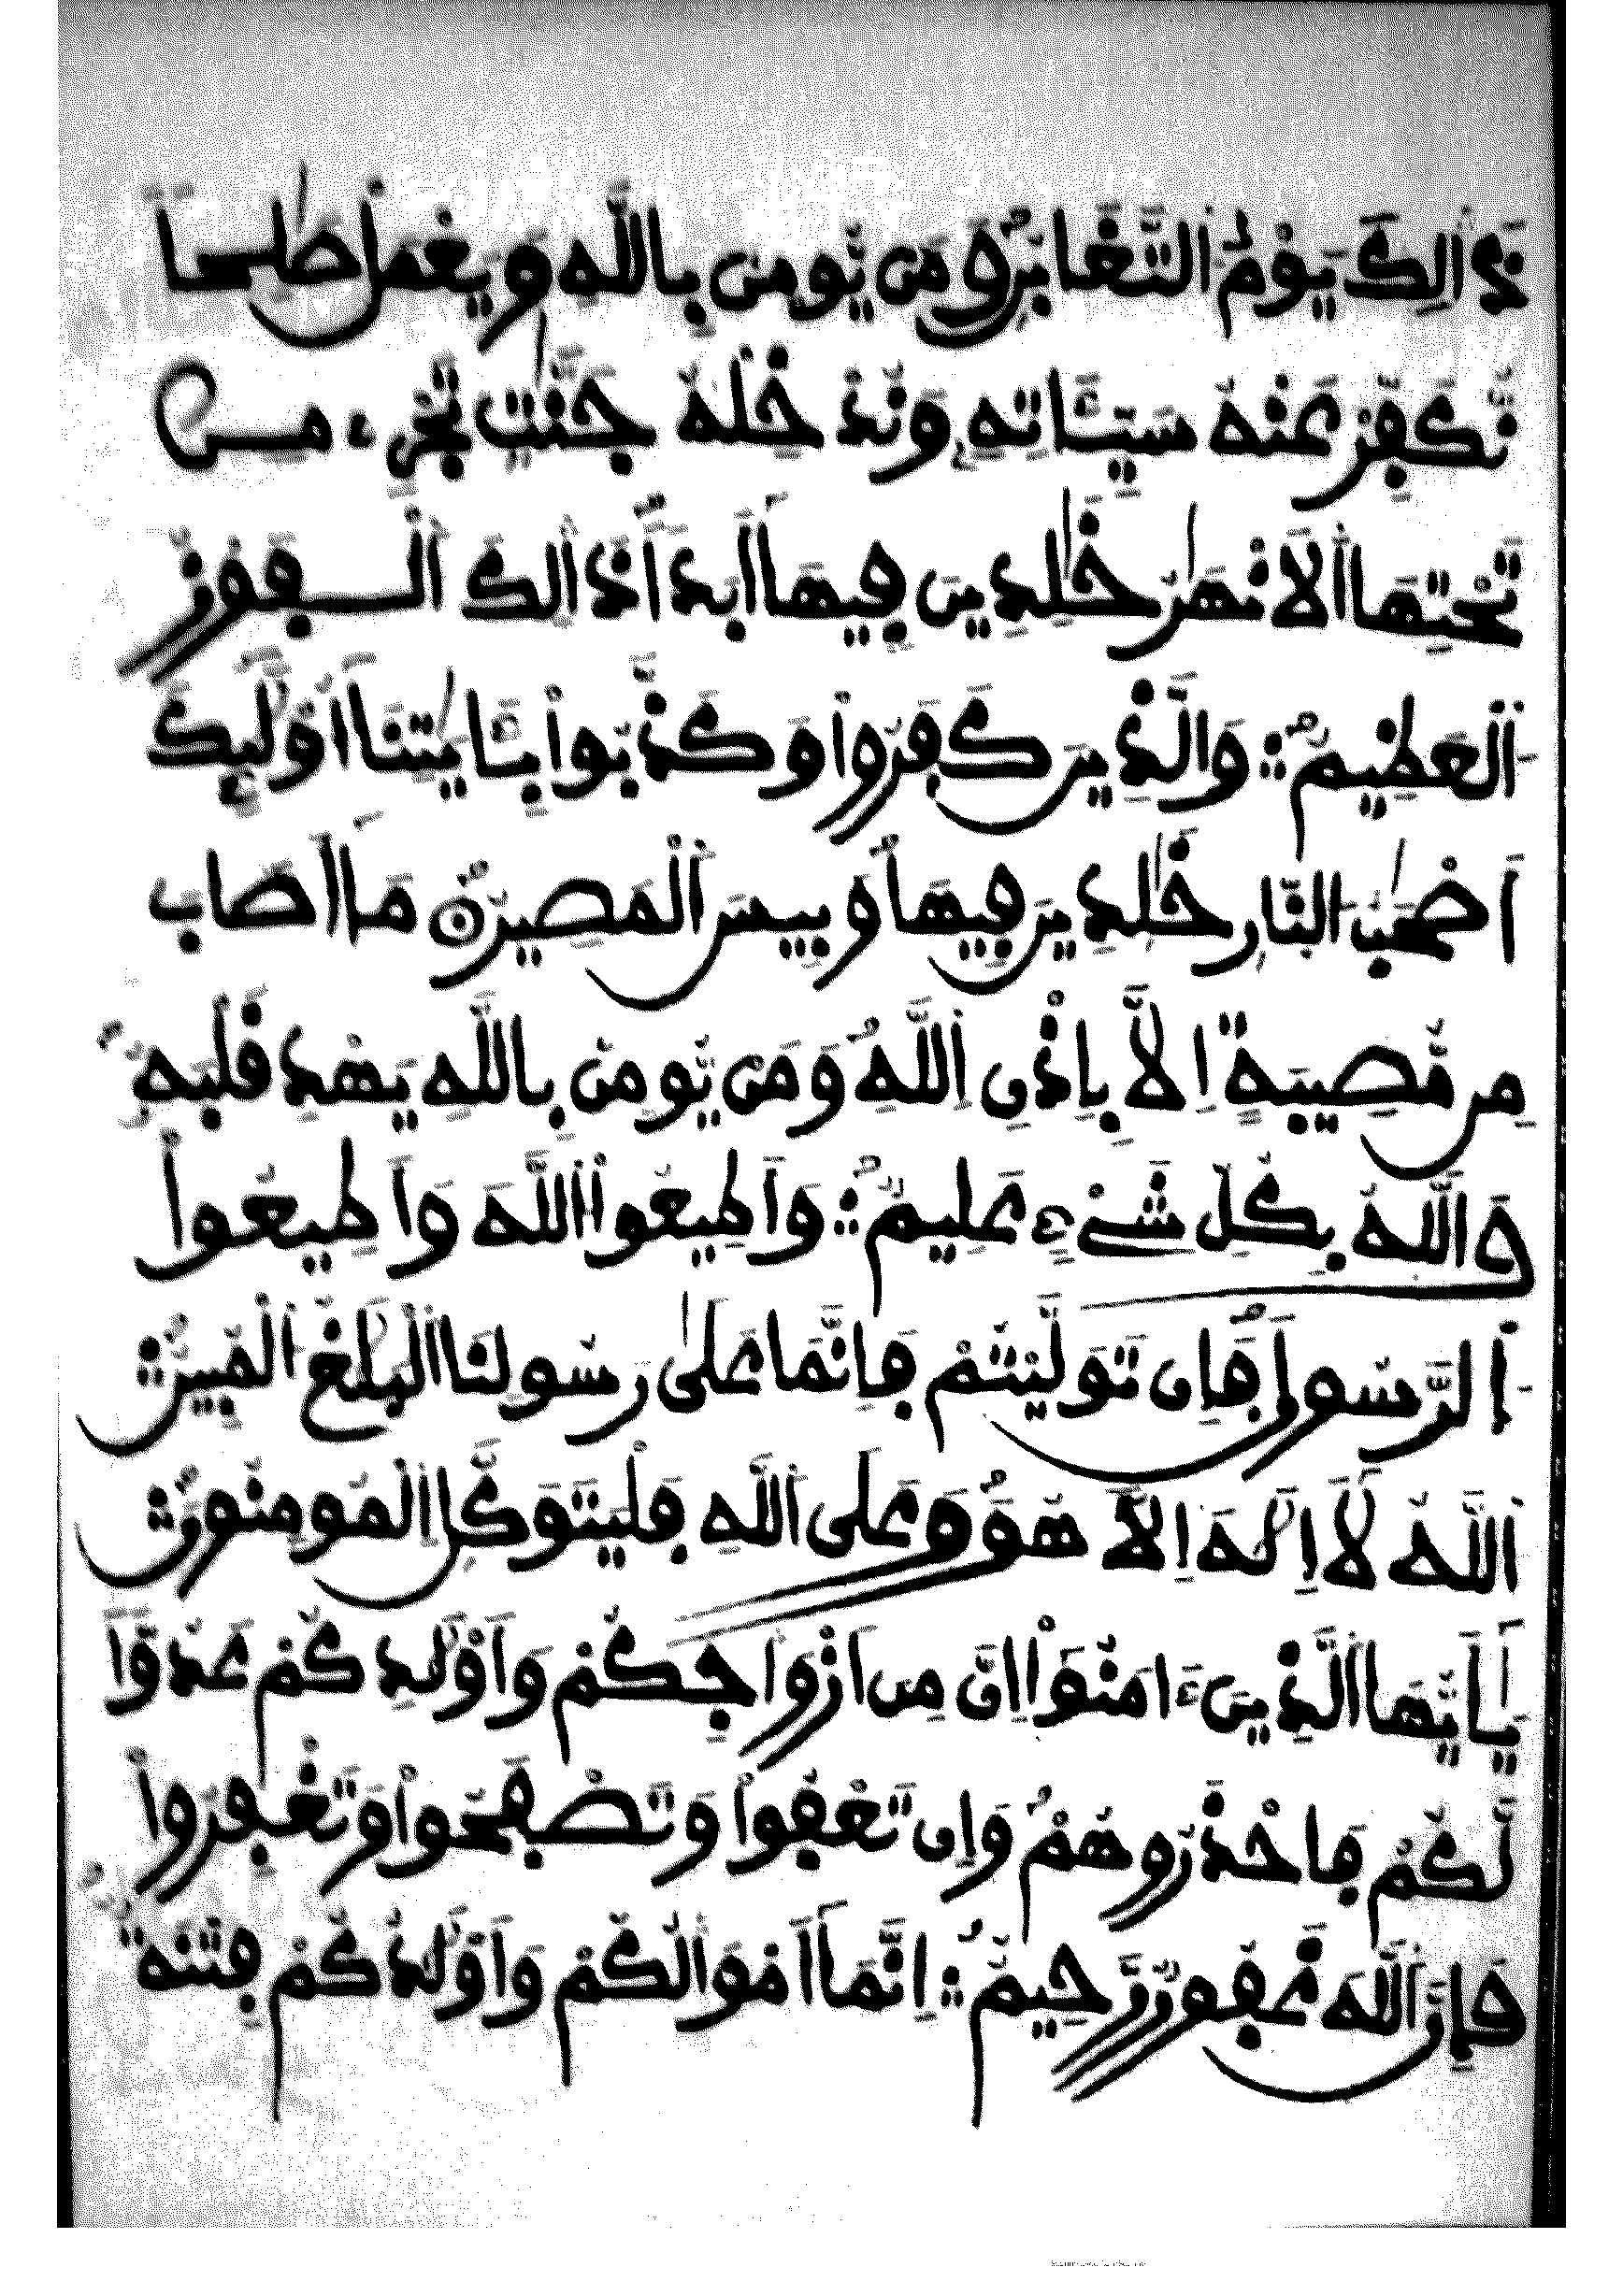 ذَٰلِكَ يَوْمُ ٱلتَّغَابُنِ وَمَن يُومِنۢ بِاللَّهِ وَيَعْمَلْ صَٰلِحاً
نُّكَفِّرْ عَنْهُ سَيِّـَٔاتِهِۦ وَنُدْخِلْهُ جَنَّٰتٍ تَجْرِے مِن
تَحْتِهَا ٱلَانْهَٰرُ خَٰلِدِينَ فِيهَا أَبَداً ذَٰلِكَ ٱلْفَوْزُ
ٱلْعَظِيمُ ۞ وَالَّذِينَ كَفَرُواْ وَكَذَّبُواْ بِـَٔايَٰتِنَا أُوْلَٰٓئِكَ
أَصْحَٰبُ ٱلنَّارِ خَٰلِدِينَ فِيهَا وَبِيسَ ٱلْمَصِيرُ ۞ مَا أَصَابَ
مِن مُّصِيبَةٍ اِلَّا بِإِذْنِ ٱللَّهِ وَمَن يُومِنۢ بِاللَّهِ يَهْدِ قَلْبَهُ
وَاللَّهُ بِكُلِّ شَےْءٍ عَلِيمٌ ۞ وَأَطِيعُواْ ٱللَّهَ وَأَطِيعُواْ
ٱلرَّسُولَ فَإِن تَوَلَّيْتُمْ فَإِنَّمَا عَلَىٰ رَسُولِنَا ٱلْبَلَٰغُ ٱلْمُبِينُ ۞
ٱللَّهُ لَا إِلَٰهَ إِلَّا هُوَ وَعَلَى ٱللَّهِ فَلْيَتَوَكَّلِ ٱلْمُومِنُونَ ۞
يَٰأَيُّهَا ٱلَّذِينَ ءَامَنُواْ إِنَّ مِنَ ازْوَٰجِكُمْ وَأَوْلَٰدِكُمْ عَدُوّاً
لَّكُمْ فَاحْذَرُوهُمْ وَإِن تَعْفُواْ وَتَصْفَحُواْ وَتَغْفِرُواْ
فَإِنَّ ٱللَّهَ غَفُورٌ رَّحِيمٌ ۞ إِنَّمَا أَمْوَٰلُكُمْ وَأَوْلَٰدُكُمْ فِتْنَةٌ